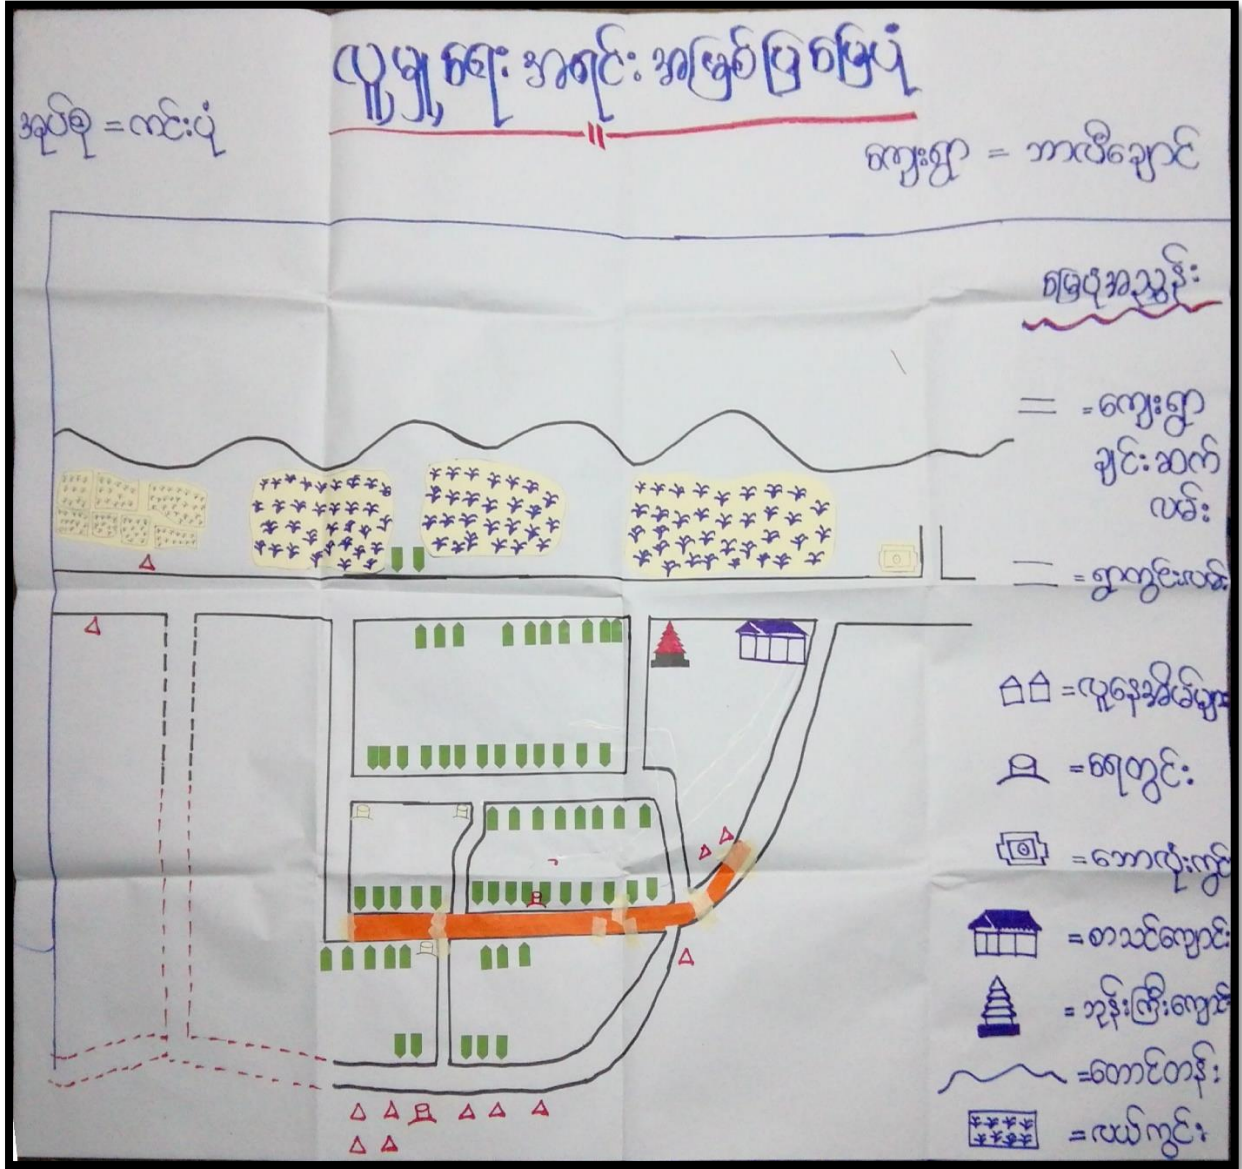 လူမှုရေးအရင်းအမြစ်ပြမြေပုံ
အုပ်စု = ကင်းပုံ
ကျေးရွာ = ဘာလီချောင်
မြေပုံအညွှန်း
= ကျေးရွာ
ချင်းဆက်
လမ်း
= ရွာတွင်းလမ်း
= လူနေအိမ်များ
= ရေတွင်း
= ဘောလုံးကွင်း
= စာသင်ကျောင်း
= ဘုန်းကြီးကျောင်း
= တောင်တန်း
= လယ်ကွင်း